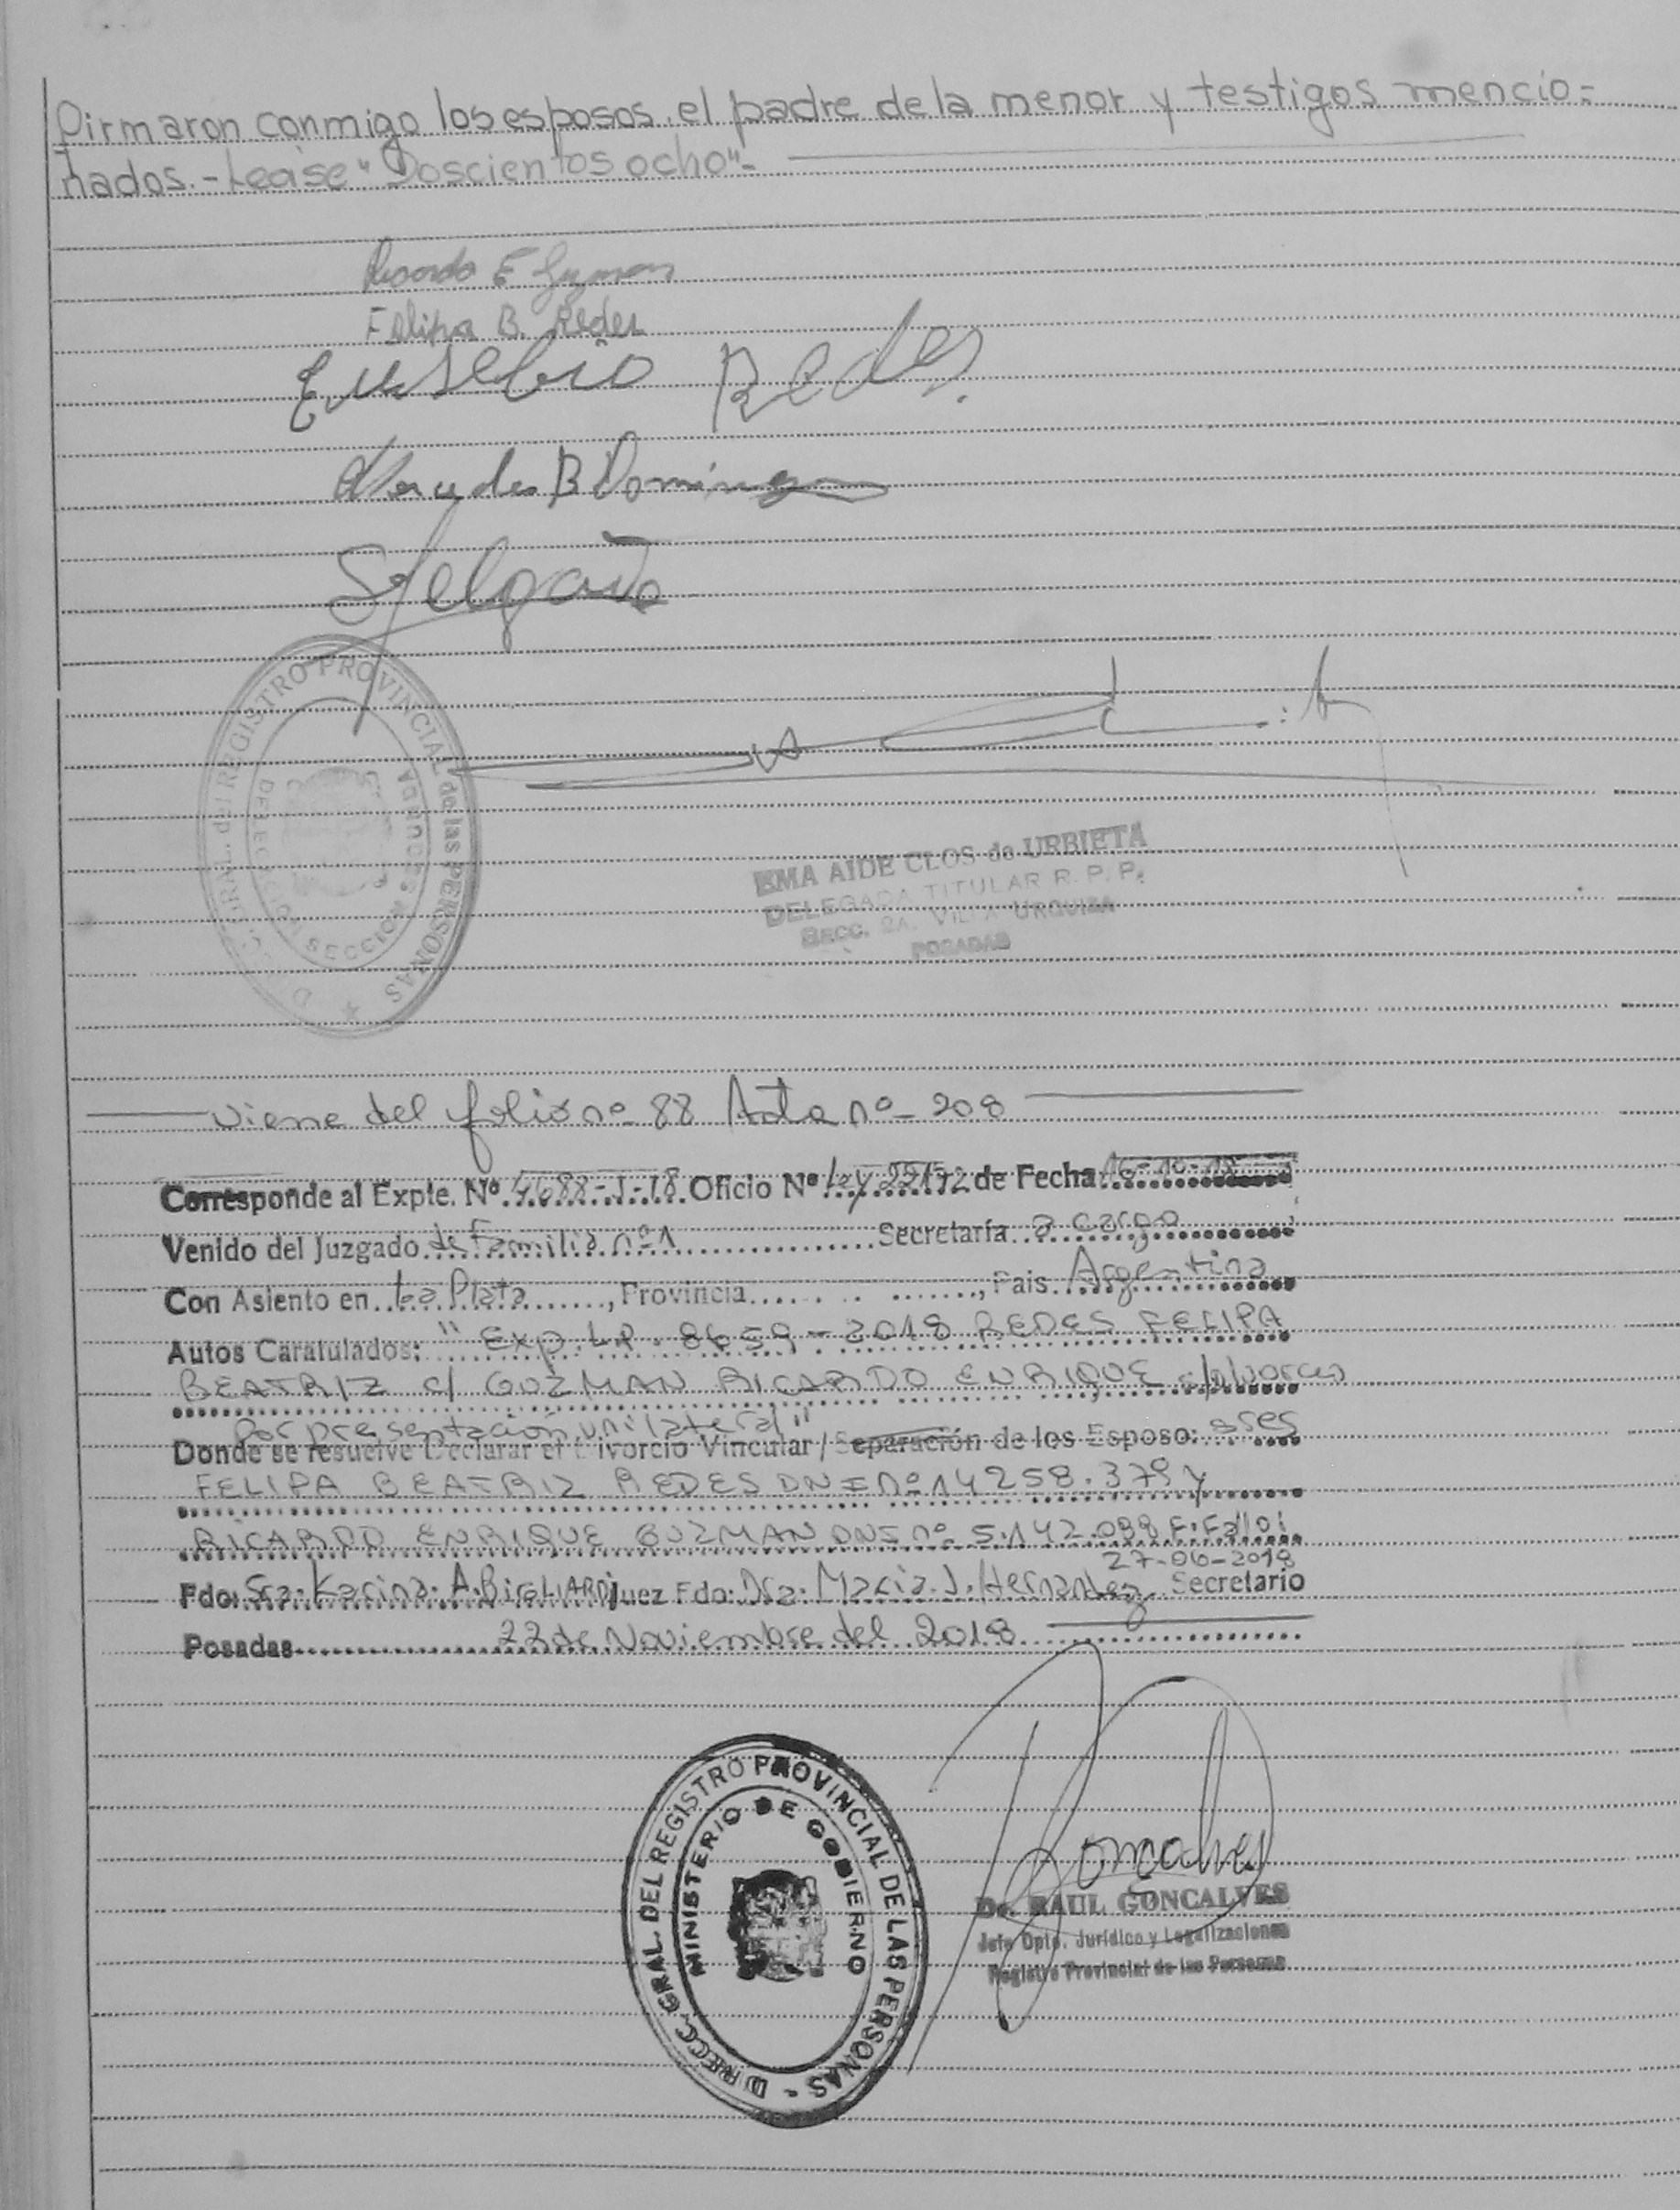 firmaron conmigo los esposos, el padre de la menor y testigos mencio=
nados.- Lease "Doscientos ocho"-
Ricardo E Guzman
Felipa B. Redes
Eusebio Redes.
Mercedes B Domínguez
Delgado
DIRECC. GRAL. del REGISTRO PROVINCIAL de las PERSONAS
SECCION
EMA AIDE CLOS de URBIETA
DELEGADA TITULAR R. P. P.
SECC. 2A. VILLA URQUIZA
POSADAS
viene del folio nº 88 Acta nº - 208
Corresponde al Expte. Nº 4688-J-18 Oficio Nº Ley 22172 de Fecha 16-10-18
Venido del Juzgado de Familia nº 1 Secretaría a cargo
Con Asiento en La Plata, Provincia, Pais Argentina
Autos Caratulados: "Exp. LP. 8659-2018 REDES FELIPA
BEATRIZ c/ GUZMAN RICARDO ENRIQUE s/divorcio
Por presentación unilateral"
Donde se resuelve Declarar el Divorcio Vincular / Separación de los Esposo: ases
FELIPA BEATRIZ REDES DNI nº 14258.379 y
RICARDO ENRIQUE GUZMAN DNI nº 5.142.099 F: Falloi
27-06-2018
Fdo: Sra: Karina. A. BIGLIARDI Juez Fdo: Dra: Maria. J. Hernandez Secretario
Posadas 22 de Noviembre del 2018
DIRECC. GRAL. DEL REGISTRO PROVINCIAL DE LAS PERSONAS -
MINISTERIO DE GOBIERNO
Goncalves
Dr. RAUL GONCALVES
Jefe Dpto. Jurídico y Legalizaciones
Registro Provincial de las Personas